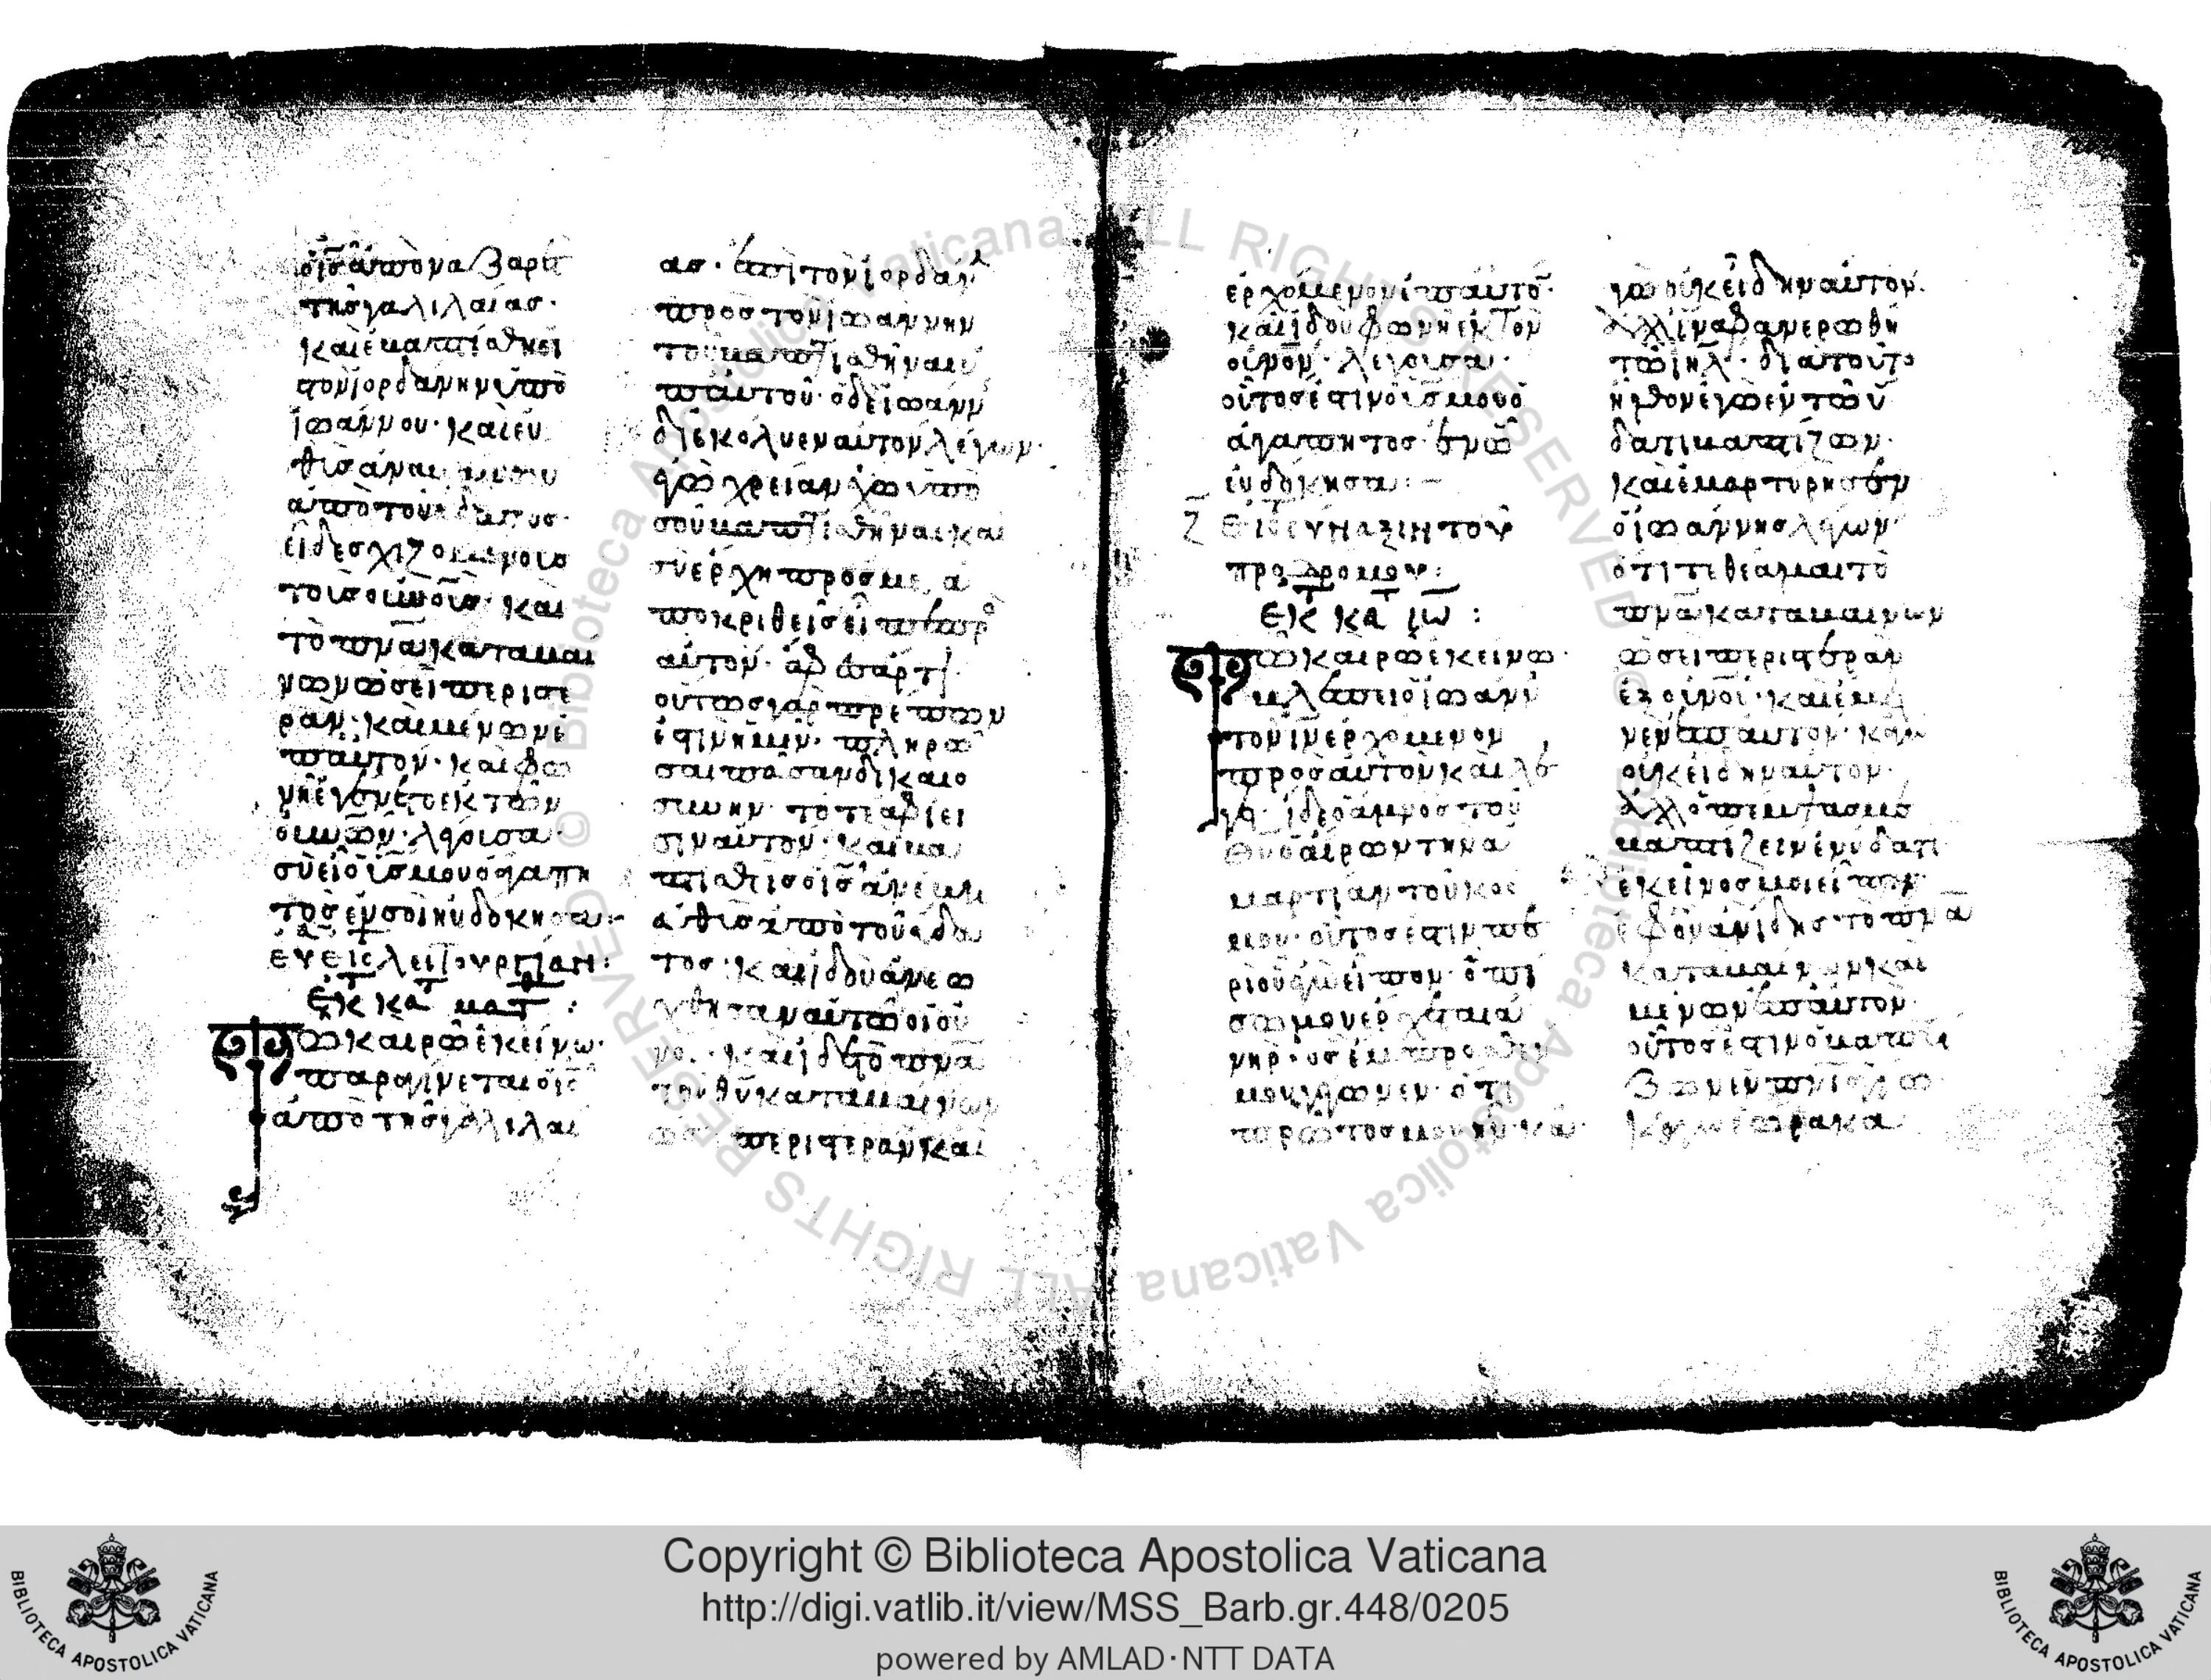 ὁ ἰς ἀπὸ ναζαρὲτ
τῆς γαλιλαίας·
καὶ ἐβαπτίσθη εἰς
τὸν ἰορδάνην ὑπὸ
ἰωάννου· καὶ εὐ
θὺς ἀναβαίνων
ἀπὸ τοῦ ὕδατος·
εἶδε σχιζομένους
τοὺς οὐνοὺς· καὶ
τὸ πνα καταβαῖ
νον ὡσεὶ περιστε
ράν· καὶ μένον ἐ
π αὐτόν· καὶ φω
νὴ ἐγένετο ἐκ τῶν
οὐνῶν· λέγουσα·
σὺ εἶ ὁ υς μου ὁ ἀγαπη
τὸς ἐν σοὶ ηὐδόκησα:
ευ εἰς λειτουργίαν:
ἐκ κατ ματ :
Τῶ καιρῶ ἐκείνω·
παραγίνεται ὁ ις
ἀπὸ τῆς γαλιλαί
ας· ἐπὶ τὸν ἰορδάν
πρὸς τὸν ἰωάννην
τοῦ βαπτισθῆναι ὑ
π αὐτοῦ· ὁ δὲ ἰωάνν
διεκόλυεν αὐτὸν λέγων·
ἐγὼ χρείαν ἔχω ὑπὸ
σοῦ βαπτισθῆναι καὶ
σὺ ἔρχη πρός με, ἀ
ποκριθεὶς ὁ ις εἶπε πρὸς
αὐτόν· ἄφες ἄρτι
οὕτως γὰρ πρέπων
ἐστὶν ἡμῖν· πληρῶ
σαι πᾶσαν δικαιο
σύνην· τότε ἀφίει
σιν αὐτόν· καὶ βα
πτισθεὶς ὁ ις ἀνέβη
εὐθὺς ἀπὸ τοῦ ὕδα
τος· καὶ ἰδοὺ ἀνεώ
χθησαν αὐτῶ οἱ οὐ
νοὶ· καὶ εἶδε τὸ πνα
τοῦ θυ καταβαῖνον
ὡσεὶ περιστερὰν καὶ
ἐρχόμενον ἐπ αὐτό·
καὶ ἰδοὺ φωνὴ ἐκ τῶν
οὐνῶν· λέγουσα·
οὗτός ἐστιν ὁ υς μου ὁ
ἀγαπητός· ἐν ὧ
εὐδόκησα: –
Ζ Εἰς τ σύναξιν τοῦ
προδρόμου:
ἐκ κατ ιω :
Τῶ καιρῶ ἐκείνω·
βλέπει ὁ ἰωάνν
τὸν ιν ἐρχόμενον
πρὸς αὐτὸν καὶ λέ
γει· ἴδε ὁ ἀμνὸς τοῦ
θυ ὁ αἴρων τὴν ἁ
μαρτίαν τοῦ κόσ
μου· οὗτός ἐστιν πε
ρὶ οὗ ἐγὼ εἶπον· ὀπί
σω μου ἔρχεται ἀ
νήρ· ὃς ἔμπροσθέν
μου γέγονεν· ὅτι
πρῶτός μου ἦν· κα
γὼ οὐκ εἴδην αὐτόν·
ἀλλ ἵνα φανερωθῆ
τῶ ιηλ· διὰ τοῦτο
ἦλθον ἐγὼ ἐν τῶ ὕ
δατι βαπτίζων·
καὶ ἐμαρτύρησεν
ὁ ἰωάννης λέγων·
ὅτι τεθέαμαι τὸ
πνα καταβαῖνον
ὡσεὶ περιστερὰν
ἐξ οὐνοῦ· καὶ ἔμει
νεν ἐπ αὐτόν· καγὼ
οὐκ εἴδην αὐτόν·
ἀλλ ὁ πέμψας με
βαπτίζειν ἐν ὕδατι
ἐκεῖνός μοι εἶπεν·
ἐφ ὃν ἂν ἴδης τὸ πνα
καταβαῖνον καὶ
μένον ἐπ αὐτόν·
οὗτός ἐστιν ὁ βαπτί
ζων ἐν πνι ἁγίω·
καγὼ ἑώρακα
Copyright © Biblioteca Apostolica Vaticana
http://digi.vatlib.it/view/MSS_Barb.gr.448/0205
powered by AMLAD·NTT DATA
BIBLIOTECA APOSTOLICA VATICANA
BIBLIOTECA APOSTOLICA VATICANA
© Biblioteca Apostolica Vaticana ALL RIGHTS RESERVED
© Biblioteca Apostolica Vaticana ALL RIGHTS RESERVED